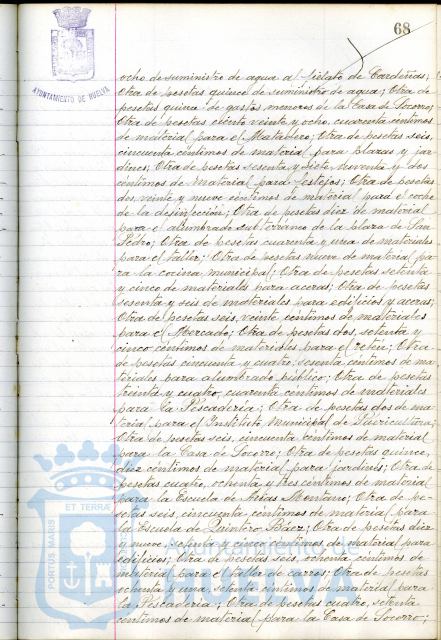 68
AYUNTAMIENTO DE HUELVA
ocho de suministro de agua al fielato de Cardeñas;
Otra de pesetas quince de suministro de agua; Otra de
pesetas quince de gastos menores de la Casa de Socorro;
Otra de pesetas ciento veinte y ocho, cuarenta céntimos
de material para el Matadero; Otra de pesetas seis,
cincuenta céntimos de material para plazas y jar-
dines; Otra de pesetas sesenta y siete, noventa y dos
céntimos de material para festejos; Otra de pesetas
dos, veinte y nueve céntimos de material para el coche
de la desinfección; Otra de pesetas diez de material
para el alumbrado subterraneo de la plaza de San
Pedro; Otra de pesetas cuarenta y una de materiales
para el taller; Otra de pesetas nueve de material pa-
ra la cocina municipal; Otra de pesetas setenta
y cinco de materiales para aceras; Otra de pesetas
sesenta y seis de materiales para edificios y aceras;
Otra de pesetas seis, veinte céntimos de materiales
para el Mercado; Otra de pesetas dos, setenta y
cinco céntimos de materiales para el retén; Otra
de pesetas cincuenta y cuatro, sesenta céntimos de ma-
teriales para alumbrado público; Otra de pesetas
treinta y cuatro, cuarenta céntimos de materiales
para la Pescadería; Otra de pesetas dos de ma-
terial para el Instituto Municipal de Puericultura;
Otra de pesetas seis, cincuenta céntimos de material
para la Casa de Socorro; Otra de pesetas quince,
diez céntimos de material para jardines; Otra de
pesetas cuatro, ochenta y tres céntimos de material
para la Escuela de Arias Montano; Otra de pe-
setas seis, cincuenta céntimos de material para
la Escuela de Quintero Báez; Otra de pesetas diez
y nueve, setenta y cinco céntimos de material para
edificios; Otra de pesetas seis, ochenta céntimos de
material para el taller de carros; Otra de pesetas
ochenta y una, setenta céntimos de material para
la Pescadería; Otra de pesetas cuatro, setenta
céntimos de material para la Casa de Socorro;
PORTUS MARIS ET TERRAE
Ayuntamiento de